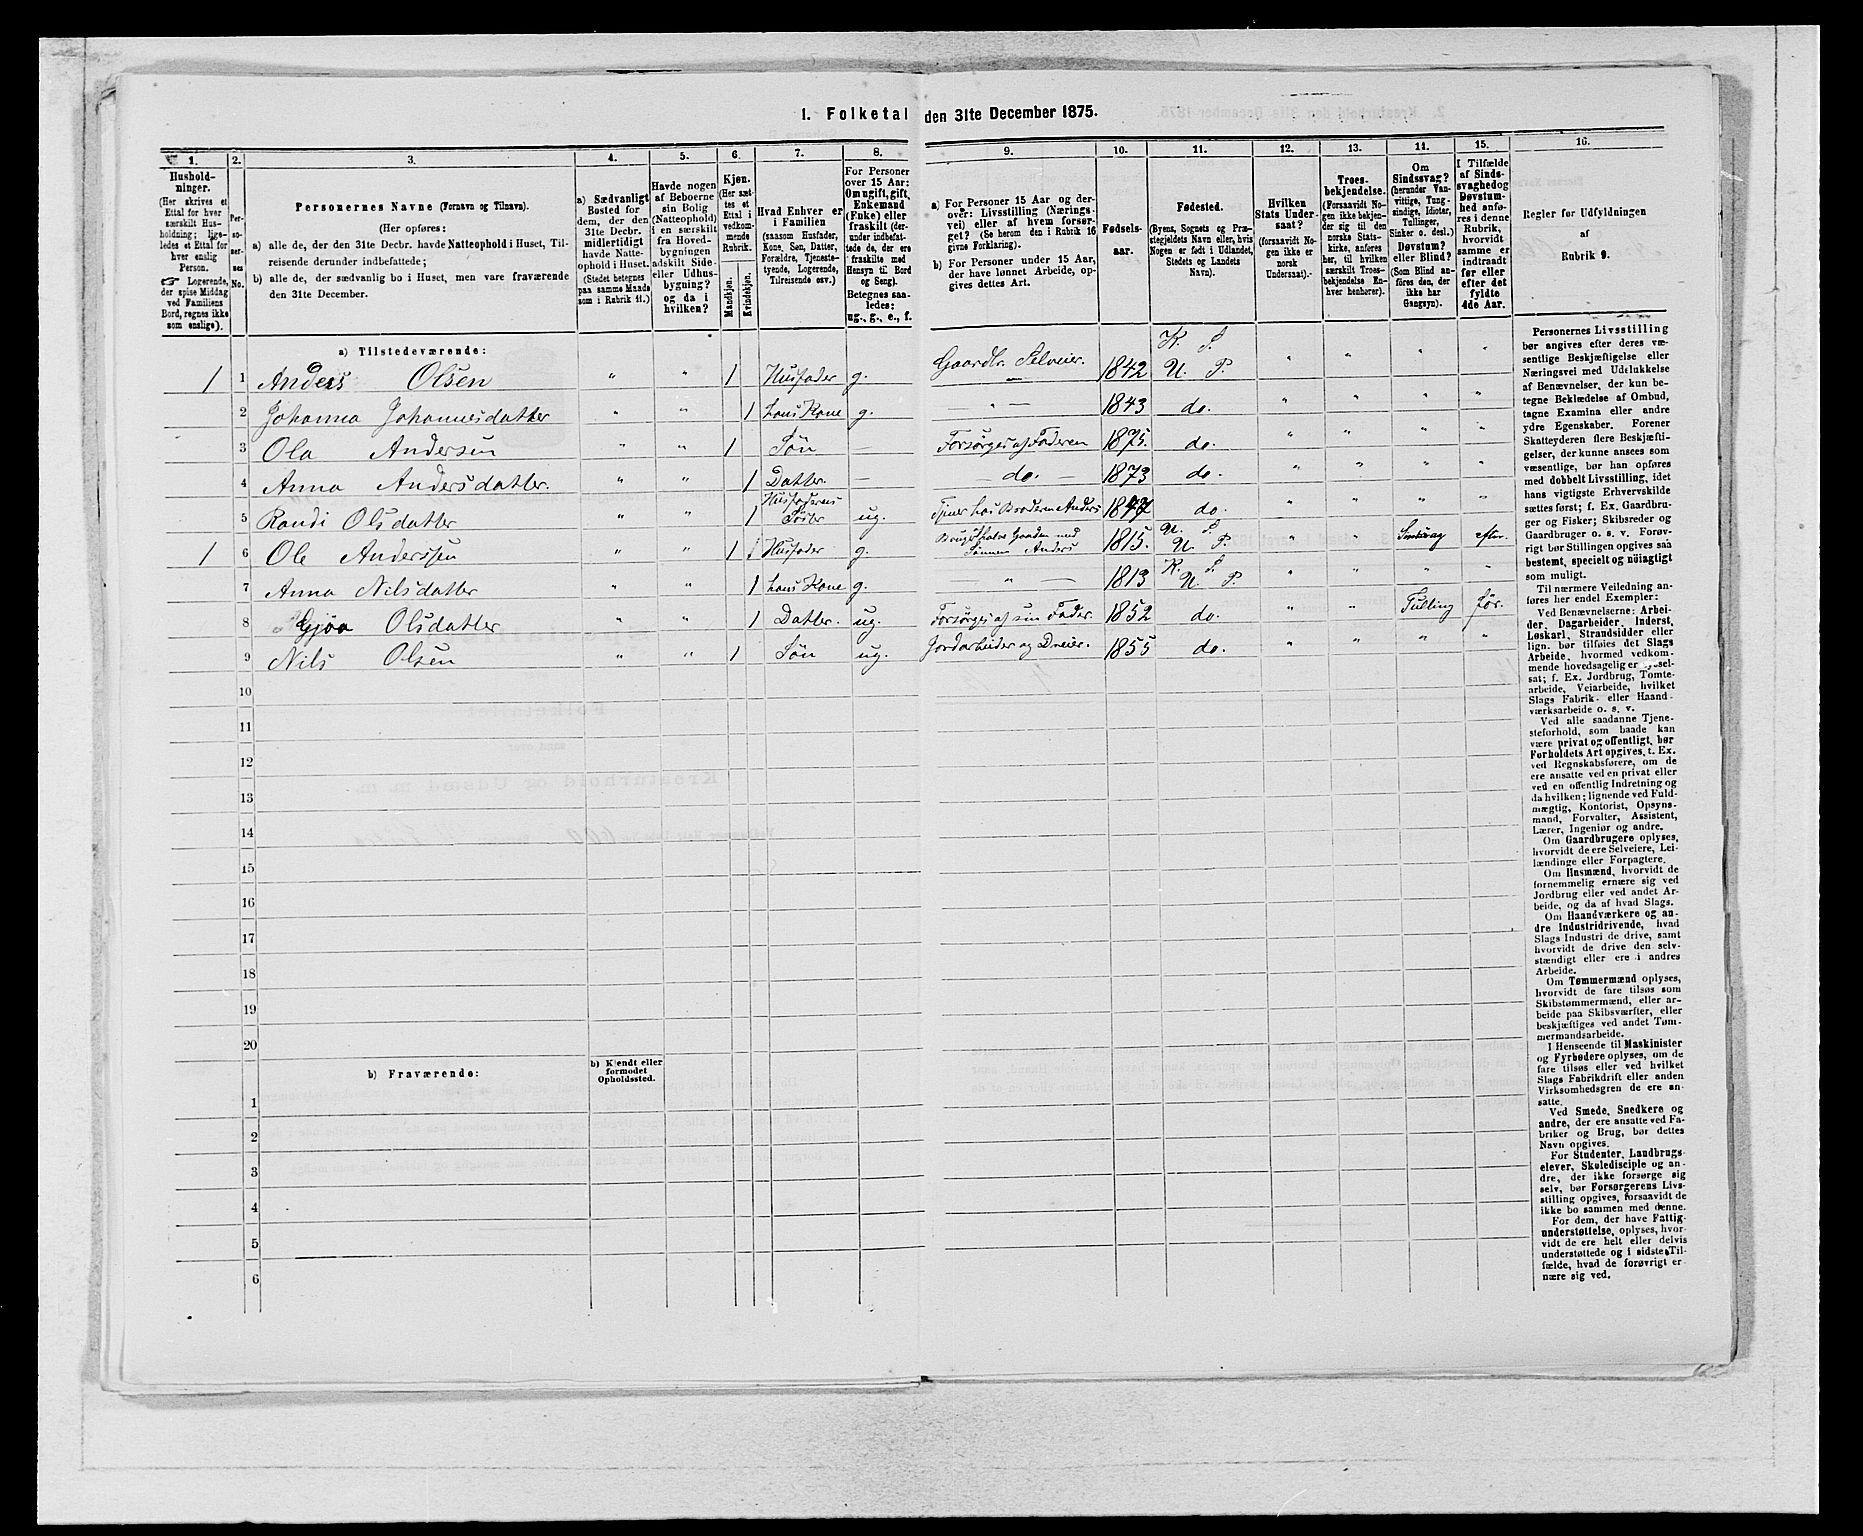 1. Folketal den 31te December 1875.
1. 2. 3. 4. 5. 6. 7. 8. 9. 10. 11. 12. 13. 14. 15. 16.
Hushold-
ninger.
(Her skrives et
Ettal for hver
særskilt Hus-
holdning; lige-
ledes et Ettal for
hver enslig
Person.
☞ Logerende,
der spise Middag
ved Familiens
Bord, regnes ikke
som enslige).
Per-
so-
ner-
ses
No.
Personernes Navne (Fornavn og Tilnavn).
(Her opføres:
a) alle de, der den 31te Decbr. havde Natteophold i Huset, Til-
reisende derunder indbefattede;
b) alle de, der sædvanlig bo i Huset, men vare fraværende
den 31te December.
a) Sædvanligt
Bosted for
dem, der den
31te Decbr.
midlertidigt
havde Natte-
ophold i Huset.
(Stedet betegnes
paa samme Maade
som i Rubrik 11.)
Havde nogen
af Beboerne
sin Bolig
(Natteophold)
i en særskilt
fra Hoved-
bygningen
adskilt Side-
eller Udhus-
bygning?
og da i
hvilken?
Kjøn.
(Her sæt-
tes et
Ettal i
vedkom-
mende
Rubrik.
Mandkjøn.
Kvindekjøn.
Hvad Enhver er
i Familien
(saasom Husfader,
Kone, Søn, Datter,
Forældre, Tjeneste-
tyende, Logerende,
Tilreisende osv.)
For Personer
over 15 Aar:
Om ugift, gift,
Enkemand
(Enke) eller
fraskilt (der-
under indbefat-
tede de, der ere
fraskilte med
Hensyn til Bord
og Seng).
Betegnes saa-
ledes:
ug., g., e., f.
a) For Personer 15 Aar og der-
over: Livsstilling (Nærings-
vei) eller af hvem forsør-
get? (Se herom den i Rubrik 16
givne Forklaring).
b) For Personer under 15 Aar,
der have lønnet Arbeide, op-
gives dettes Art.
Fødsels-
aar.
Fødested.
(Byens, Sognets og Præ-
stegjeldets Navn eller, hvis
Nogen er født i Udlandet,
Stedets og Landets
Navn).
Hvilken
Stats Under-
saat?
(forsaavidt No-
gen ikke er
norsk
Undersaat).
Troes-
bekjendelse.
(Forsaavidt No-
gen ikke bekjen-
der sig til den
norske Stats-
kirke, anføres
her, til hvilken
særskilt Troes-
bekjendelse En-
hver henhører).
Om
Sindssvag?
(herunder Van-
vittige, Tung-
sindige, Idioter,
Tullinger,
Sinker o. desl.)
Døvstum?
eller Blind?
(Som Blind an-
føres den, der
ikke har
Gangsyn).
I Tilfælde
af Sinds-
svaghed og
Døvstum-
hed anfø-
res i denne
Rubrik,
hvorvidt
samme er
indtraadt
før eller
efter det
fyldte
4de Aar.
Regler for Udfyldningen
af
Rubrik 9.
a) Tilstedeværende:
K. S.
1 1 Anders Olsen " " 1 Husfader g. Gaardbr. Selveier. 1842 U. P. " " " "
2 Johanna Johannesdatter " " 1 hans Kone g. — " — 1843 do. " " " "
3 Ola Andersen " " 1 Søn — Forsørges af Faderen 1875. do. " " " "
4 Anna Andersdatter. " " 1 Datter. — — do. — 1873 do. " " " "
5 Randi Olsdatter " " 1 Husfaderens Søster ug. Tjener hos Broderen Anders do. " " " "
1 6 Ole Anderssen " " 1 Husfader g. 1815. U. S. U. P. " " efter.
7 Anna Nilsdatter " " 1 hans Kone g. — " — 1813 K. S. U. P. " " " "
8 Gjoa Olsdatter " " 1 Datter. ug. Forsørges af sin Fader. 1852 do. " " Tulling før.
9 Nils Olsen " " 1 Søn ug. Jordarbeider og Dreier. 1855 do. " " " "
10
11
12
13
14
15
16
17
18
19
20
b) Fraværende:
b) Kjendt eller
formodet
Opholdssted.
1
2
3
4
5
6
Personernes Livsstilling
bør angives efter deres væ-
sentlige Beskjæftigelse eller
Næringsvei med Udelukkelse
af Benævnelser, der kun be-
tegne Beklædelse af Ombud,
tagne Examina eller andre
ydre Egenskaber. Forener
Skatteyderen flere Beskjæfti-
gelser, der kunne ansees som
væsentlige, bør han opføres
med dobbelt Livsstilling, idet
hans vigtigste Erhvervskilde
sættes først; f. Ex. Gaardbru-
ger og Fisker; Skibsreder og
Gaardbruger o. s. v. Forøv-
rigt bør Stillingen opgives saa
bestemt, specielt og nøiagtigt
som muligt.
Til nærmere Veiledning an-
føres her endel Exempler:
Ved Benævnelserne: Arbei-
der, Dagarbeider, Inderst,
Løskarl, Strandsidder eller
lign. bør tilføies det Slags
Arbeide, hvormed vedkom-
mende hovedsagelig er syssel-
sat; f. Ex. Jordbrug, Tomte-
arbeide, Veiarbeide, hvilket
Slags Fabrik- eller Haand-
værksarbeide o. s. v.
Ved alle saadanne Tjene-
steforhold, som baade kan
være privat og offentligt, bør
Forholdets Art opgives, t. Ex.
ved Regnskabsførere, om de
ere ansatte ved en privat eller
ved en offentlig Indretning og
da hvilken; lignende ved Fuld-
mægtig, Kontorist, Opsyns-
mand, Forvalter, Assistent,
Lærer, Ingeniør og andre.
Om Gaardbrugere oplyses,
hvorvidt de ere Selveiere, Lei-
lændinge eller Forpagtere.
Om Husmænd, hvorvidt de
fornemmelig ernære sig ved
Jordbrug eller ved andet Ar-
beide, og da af hvad Slags.
Om Haandværkere og an-
dre Industridrivende, hvad
Slags Industri de drive, samt
hvorvidt de drive den selv-
stændigt eller ere i andres
Arbeide.
Om Tømmermænd oplyses,
hvorvidt de fare tilsøs som
Skibstømmermænd, eller ar-
beide paa Skibsværfter, eller
beskjæftiges ved andet Tøm-
mermandsarbeide.
I Henseende til Maskinister
og Fyrbødere oplyses, om de
fare tilsøs eller ved hvilket
Slags Fabrikdrift eller anden
Virksomhedsgren de ere an-
satte.
Ved Smede, Snedkere og
andre, der ere ansatte ved Fa-
briker og Brug, bør dettes
Navn opgives.
For Studenter, Landbrugs-
elever, Skoledisciple og an-
dre, der ikke forsørge sig
selv, bør Forsørgerens Livs-
stilling opgives, forsaavidt de
ikke bo sammen med denne.
For dem, der have Fattig-
understøttelse, oplyses, hvor-
vidt de ere helt eller delvis
understøttede og i sidste Til-
fælde, hvad de forøvrigt er-
nære sig ved.